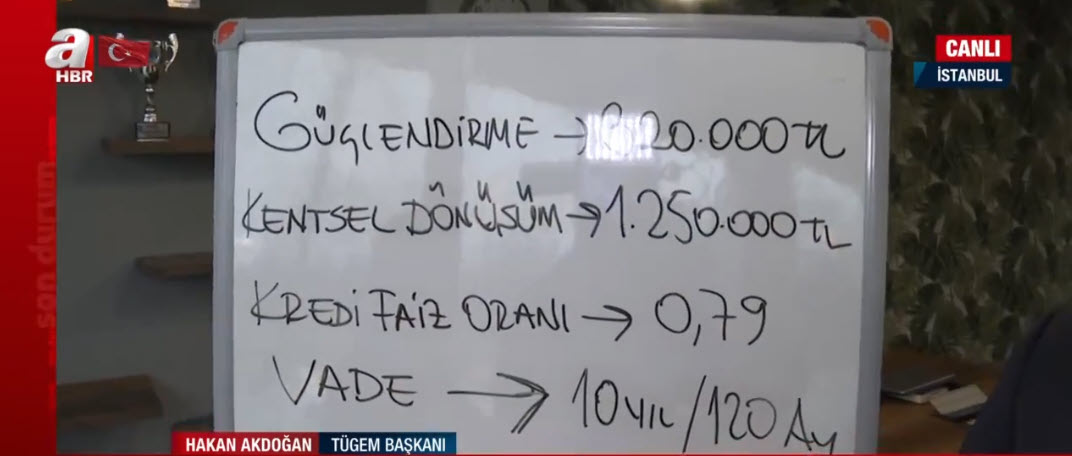 a
HBR
CANLI
İSTANBUL
son durum
GÜÇLENDİRME → 20.000 TL
KENTSEL DÖNÜŞÜM → 1.250.000 TL
KREDİ FAİZ ORANI → 0,79
VADE → 10 YIL / 120 Ay
HAKAN AKDOĞAN TÜGEM BAŞKANI